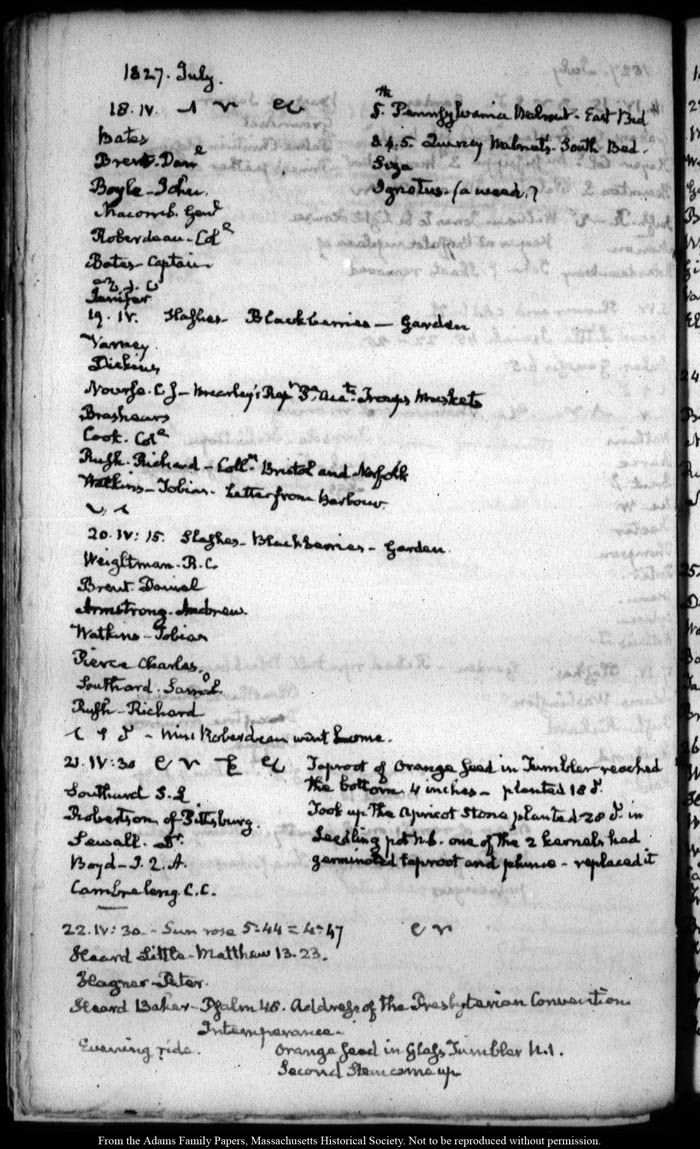 1827. July.
18. IV.
5th Pennsylvania Walnut. East Bed
Bates
3. 4. 5. Quincy Walnuts. South Bed.
Brent. Danl
Siza
Boyle. John.
Ignotus. (a weed.?
Macomb. Genl
Roberdeau. Col
Bates. Captain
Jenifer
19. IV. Hughes. Blackberries — Garden
Varney
Dickins
Nourse. C. J — Troops Muskets
Brashears
Cook. Col
Rush. Richard — Collrs Bristol and Norfolk
Watkins — Tobias. Letter from Harbour.
20. IV: 15. Hughes — Blackberries — Garden.
Weightman. R. C.
Brent. Daniel
Armstrong. Andrew
Watkins — Tobias
Pierce Charles.
Southard. Saml L.
Rush — Richard
— Miss Roberdeau went home.
21. IV: 30 Taproot of Orange seed in Tumbler reached
the bottom. 4 inches — planted 18 d.
Southard S. L
Took up the apricot stone planted 28 d. in
Robertson of Pittsburg.
Seedling pot N. 6. one of the 2 kernels had
Sewall. Dr.
germinated taproot and plume — replaced it
Boyd — J. Q. A.
Cambreleng C. C.
22. IV: 30. — Sun rose 5-44 = 4-47
Heard Little. Matthew 13. 23.
Hagner. Peter.
Heard Baker — Psalm 46. Address of the Presbyterian Convention
Intemperance —
Evening ride. Orange seed in Glass Tumbler N. 1.
Second Stem come up
From the Adams Family Papers, Massachusetts Historical Society. Not to be reproduced without permission.